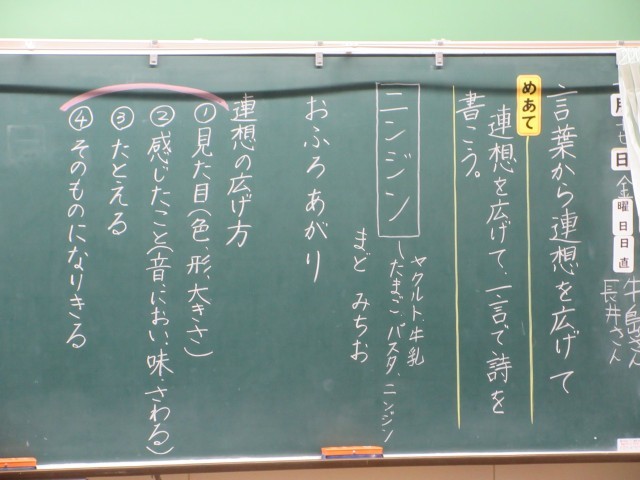 月 日 金 曜日
日直
牛島さん
長井さん
言葉から連想を広げて
めあて
連想を広げて、一言で詩を
書こう。
ニンジン
ヤクルト、牛乳
したまご、パスタ、ニンジン
まど みちお
おふろあがり
連想の広げ方
①見た目(色、形、大きさ)
②感じたこと(音、におい、味、さわる)
③たとえる
④そのものになりきる